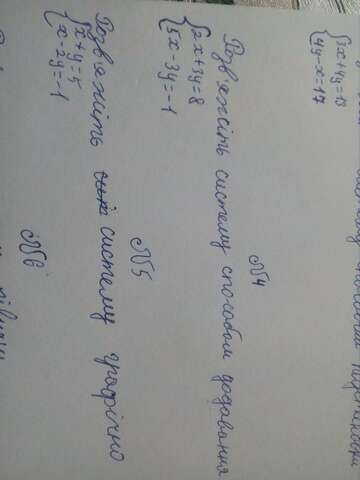 систему способом
3x+4y=13
4y-x=17
№4
Розв'яжіть систему способом додавання
2x+3y=8
5x-3y=-1
№5
Розв'яжіть систему графічно
x+y=5
x-2y=-1
№6